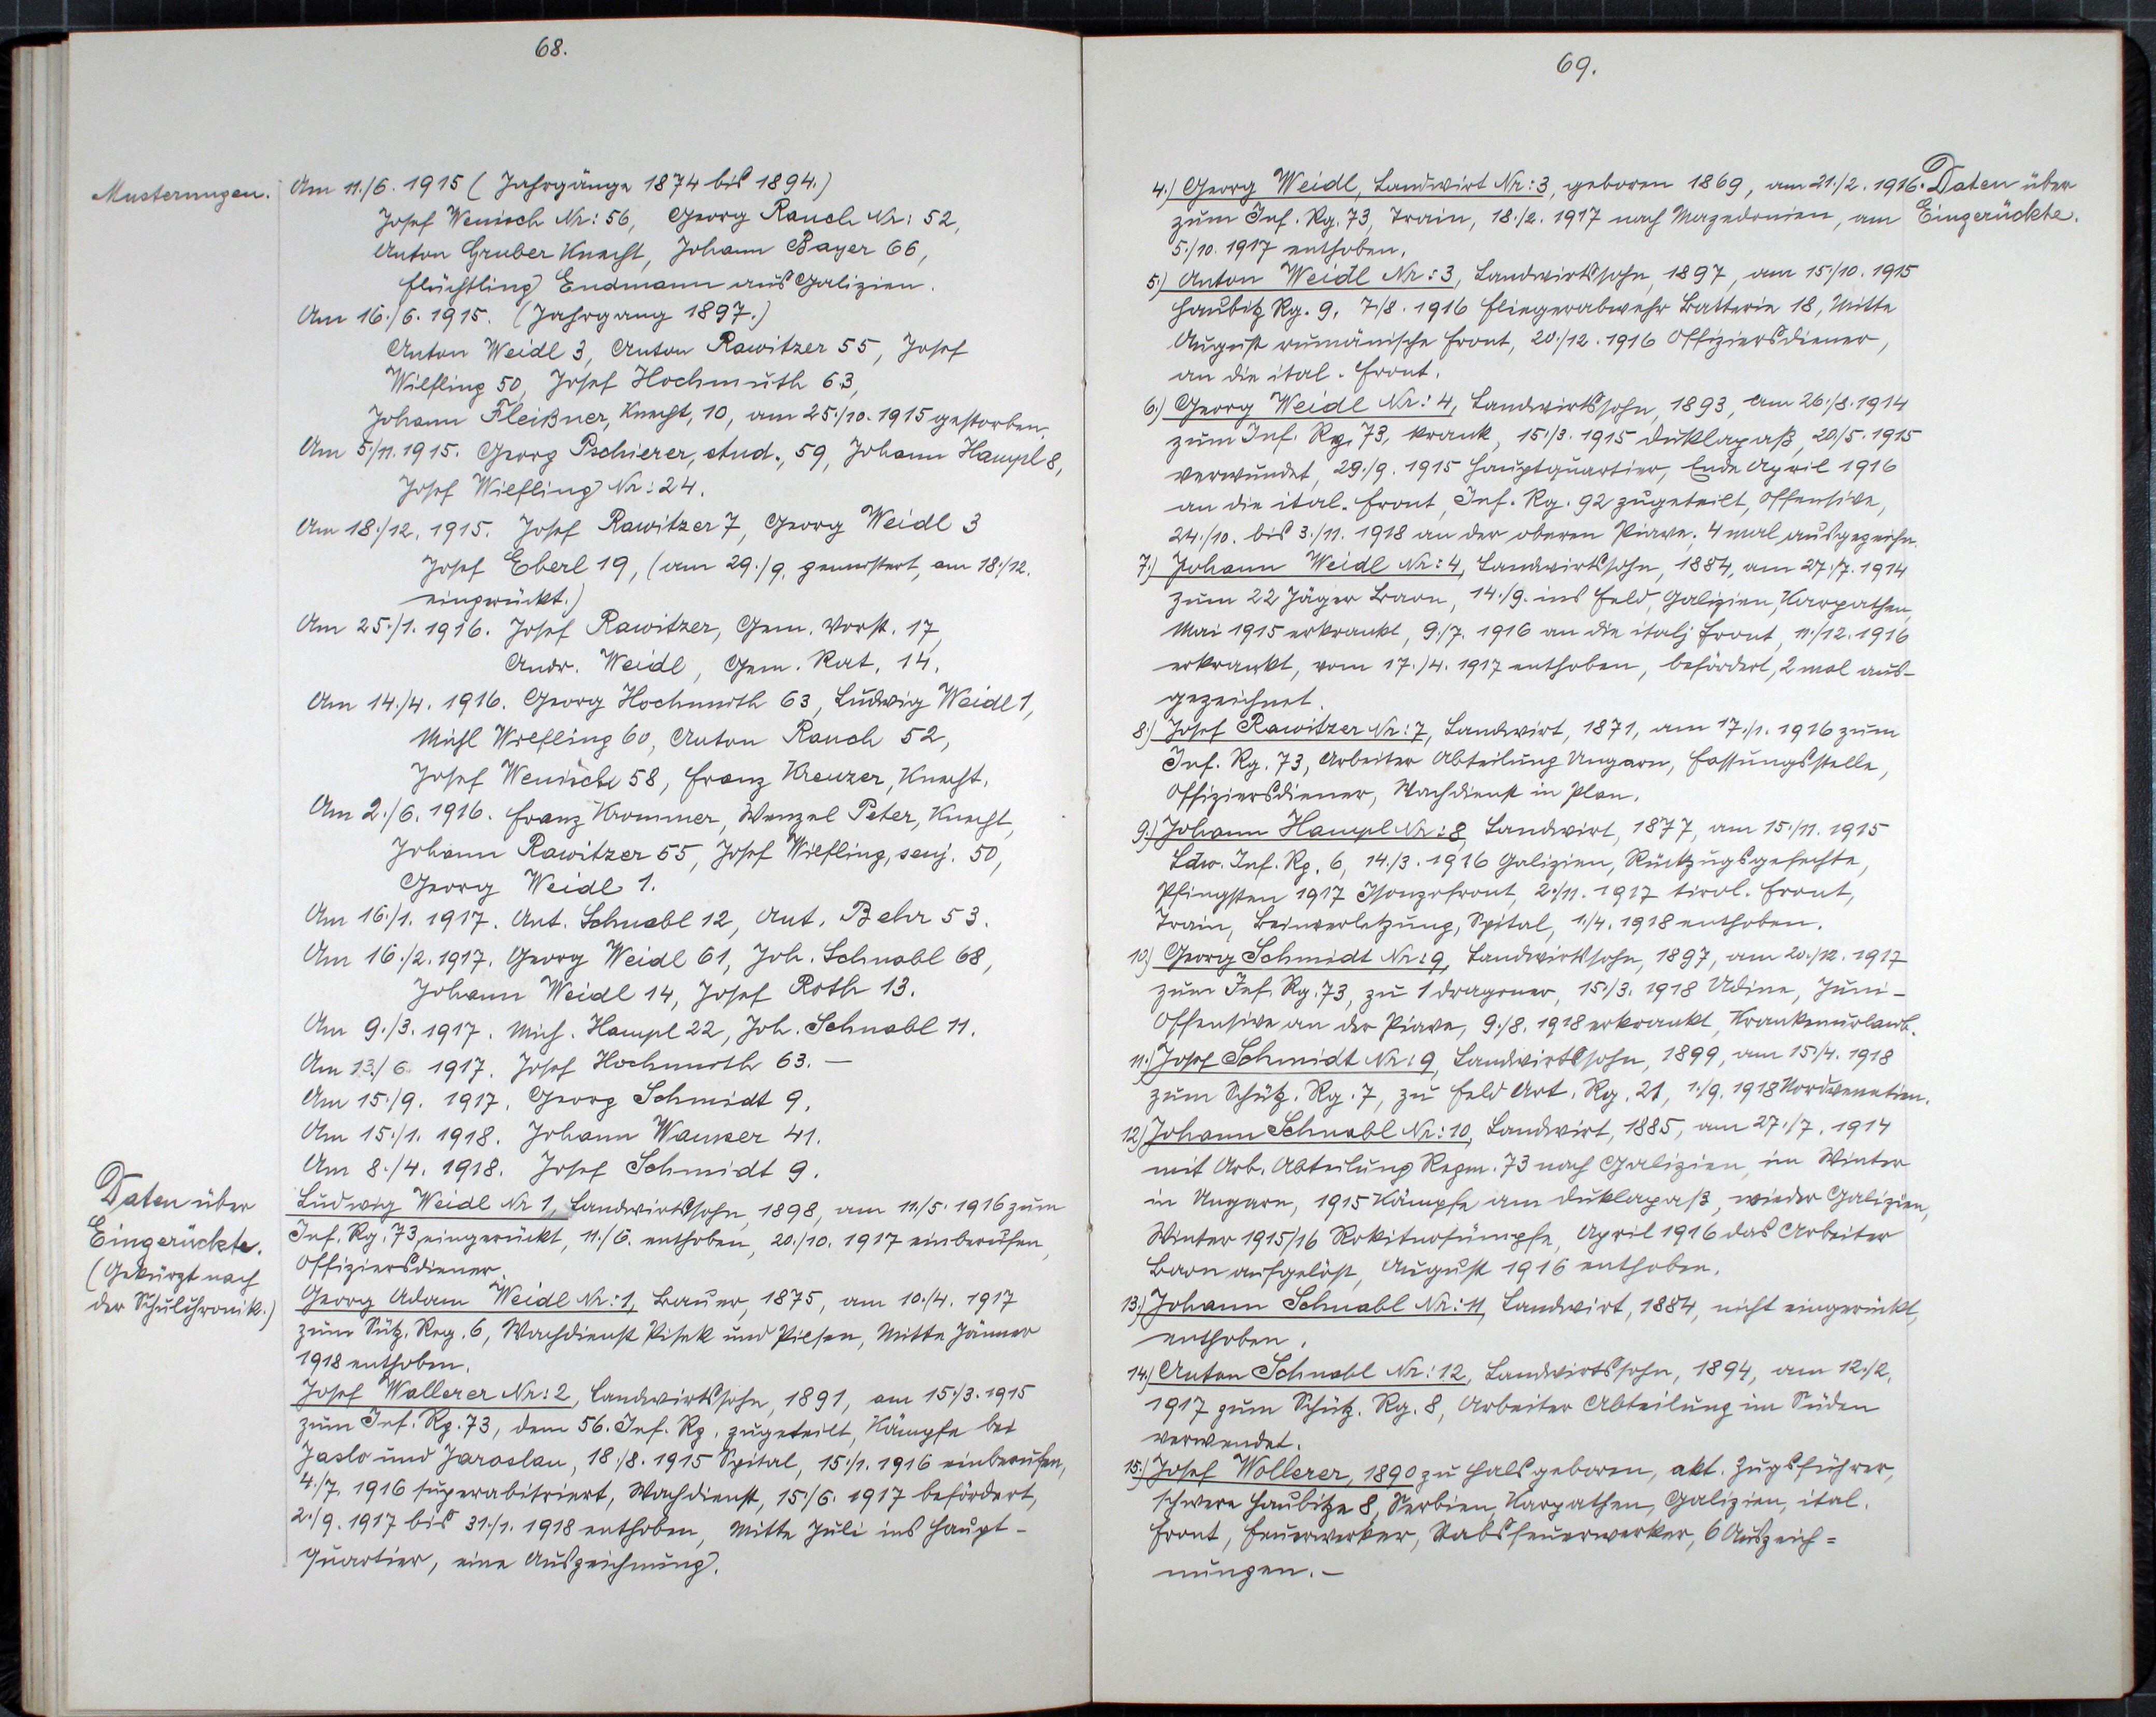 68.
Musterungen.
Am 11./6. 1915 (Jahrgänge 1874 bis 1894.)
Josef Wenisch Nr: 56, Georg Rauch Nr: 52,
Anton Gruber Knecht, Johann Bayer 66,
Flüchtling Endmann aus Galizien.
Am 16./6. 1915. (Jahrgang 1897.)
Anton Weidl 3, Anton Rawitzer 55, Josef
Wilfling 50, Josef Hochmuth 63,
Johann Fleißner, Knecht, 10, am 25./10. 1915 gestorben.
Am 5./11. 1915. Georg Pschierer, stud., 59, Johann Hampl 8,
Josef Wilfling Nr: 24.
Am 18./12. 1915. Josef Rawitzer 7, Georg Weidl 3
Josef Eberl 19, (am 29./9. gemustert, am 18./12.
eingerückt.)
Am 25./1. 1916. Josef Rawitzer, Gem. Vorst. 17,
Andr. Weidl, Gem. Rat, 14.
Am 14./4. 1916. Georg Hochmuth 63, Ludwig Weidl 1,
Michl Wilfling 60, Anton Rauch 52,
Josef Wenisch 58, Franz Kreuzer, Knecht.
Am 2./6. 1916. Franz Krommer, Wenzel Peter, Knecht,
Johann Rawitzer 55, Josef Wilfling, senj. 50,
Georg Weidl 1.
Am 16./1. 1917. Ant. Schnabl 12, Ant. Behr 53.
Am 16./2. 1917. Georg Weidl 61, Joh. Schnabl 68,
Johann Weidl 14, Josef Roth 13.
Am 9./3. 1917. Mich. Hampl 22, Joh. Schnabl 11.
Am 13./6. 1917. Josef Hochmuth 63. —
Am 15./9. 1917. Georg Schmidt 9.
Am 15./1. 1918. Johann Wauser 41.
Am 8./4. 1918. Josef Schmidt 9.
Daten über
Eingerückte.
(Gekürzt nach
der Schulchronik.)
Ludwig Weidl Nr 1, Landwirtssohn, 1898, am 11/5. 1916 zum
Inf. Rg. 73 eingerückt, 11./6. enthoben, 20./10. 1917 einberufen,
Offiziersdiener.
Georg Adam Weidl Nr: 1, Bauer, 1875, am 10./4. 1917
zum Sütz. Reg. 6, Wachdienst Pisek und Pilsen, Mitte Jänner
1918 enthoben.
Josef Wallerer Nr: 2, Landwirtssohn, 1891, am 15./3. 1915
zum Inf. Rg. 73, dem 56. Inf. Rg. zugeteilt, Kämpfe bei
Jaslo und Jaroslau, 18./8. 1915 Spital, 15./1. 1916 einberufen,
4./7. 1916 superabitriert, Wachdienst, 15./6. 1917 befördert,
2./9. 1917 bis 31./1. 1918 enthoben, Mitte Juli ins Haupt-
quartier, eine Auszeichnung.
69.
Daten über
Eingerückte.
4.) Georg Weidl, Landwirt Nr: 3, geboren 1869, am 21./2. 1916.
zum Inf. Rg. 73, Train, 18./2. 1917 nach Mazedonien, am
5./10. 1917 enthoben.
5.) Anton Weidl Nr: 3, Landwirtssohn, 1897, am 15./10. 1915
Haubitz Rg. 9, 7/8. 1916 Fliegerabwehr Batterie 18, Mitte
August rumänische Front, 20./12. 1916 Offiziersdiener,
an die ital. Front.
6.) Georg Weidl Nr: 4, Landwirtssohn, 1893, am 26./8. 1914
zum Inf. Rg. 73, krank, 15./3. 1915 Duklapaß, 20./5. 1915
verwundet, 29./9. 1915 Hauptquartier, Ende April 1916
an die ital. Front, Inf. Rg. 92 zugeteilt, Offensive,
24./10. bis 3./11. 1918 an der oberen Piave. 4 mal ausgezeichn.
7.) Johann Weidl Nr: 4, Landwirtssohn, 1884, am 27./7. 1914
zum 22 Jäger Baon, 14./9. ins Feld, Galizien, Karpathen,
Mai 1915 erkrankt, 9./7. 1916 an die italj Front, 11./12. 1916
erkrankt, vom 17./4. 1917 enthoben, befördert, 2 mal aus-
gezeichnet.
8.) Josef Rawitzer Nr: 7, Landwirt, 1871, am 17./1. 1916 zum
Inf. Rg. 73, Arbeiter Abteilung Ungarn, Fassungsstelle,
Offiziersdiener, Wachdienst in Plan.
9.) Johann Hampl Nr: 8, Landwirt, 1877, am 15./11. 1915
Ldw. Inf. Rg. 6, 14./3. 1916 Galizien, Rückzugsgefechte,
Pfingsten 1917 Isonzofront, 2./11. 1917 tirol. Front,
Train, Beinverletzung, Spital, 1./4. 1918 enthoben.
10.) Georg Schmidt Nr: 9, Landwirtssohn, 1897, am 20./12. 1917
zum Inf. Rg. 73, zu 1 Dragoner, 15./3. 1918 Udine, Juni-
Offensive an der Piave, 9./8. 1918 erkrankt, Krankenurlaub.
11.) Josef Schmidt Nr: 9, Landwirtssohn, 1899, am 15./4. 1918
zum Schütz. Rg. 7, zu Feld Art. Rg. 21, 1./9. 1918 Nordvenetien.
12.) Johann Schnabl Nr: 10, Landwirt, 1885, am 27./7. 1914
mit Arb. Abteilung Regm. 73 nach Galizien, im Winter
in Ungarn, 1915 Kämpfe am Duklapaß, wieder Galizien,
Winter 1915/16 Rokitnosümpfe, April 1916 das Arbeiter
Baon aufgelöst, August 1916 enthoben.
13.) Johann Schnabl Nr: 11, Landwirt, 1884, nicht eingerückt,
enthoben.
14.) Anton Schnabl Nr: 12, Landwirtssohn, 1894, am 12./2.
1917 zum Schütz. Rg. 8, Arbeiter Abteilung im Süden
verwendet.
15.) Josef Wollerer, 1890 zu Hals geboren, akt. Zugsführer,
schwere Haubitze 8, Serbien, Karpathen, Galizien, ital.
Front, Feuerwerker, Stabsfeuerwerker, 6 Auszeich=
nungen. —